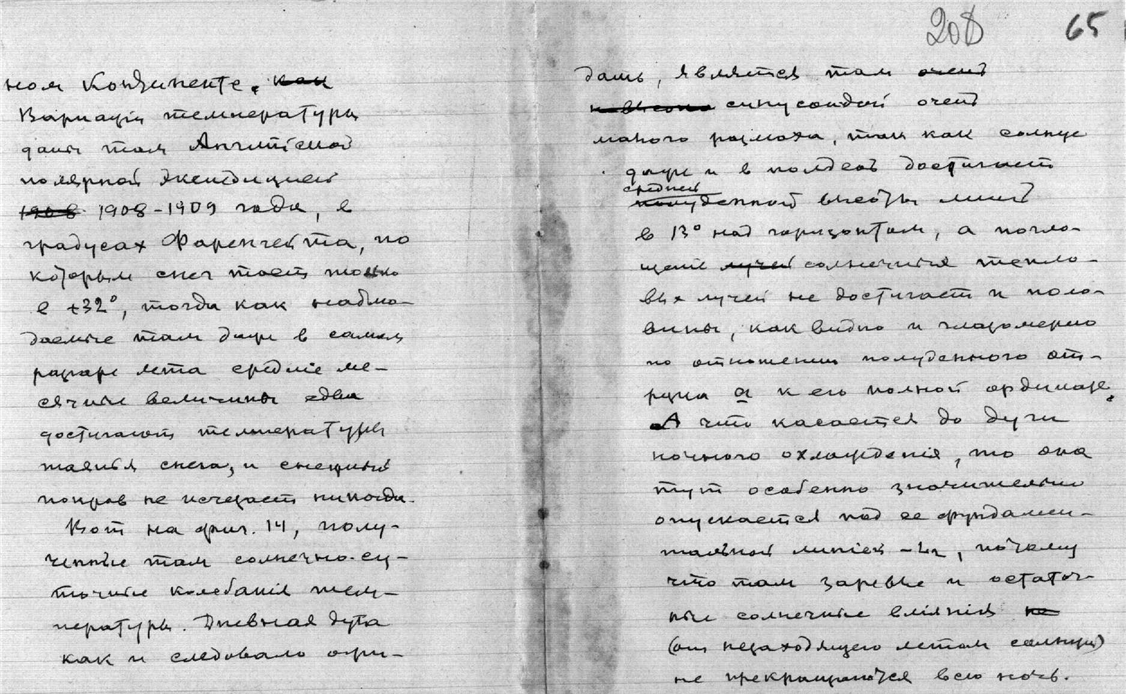 208 65
ном континенте. как
Вариации температуры
даны там Английской
полярной экспедицией
1908 1908-1909 года, в
градусах Фаренгейта, по
которым снег тает только
в +32°, тогда как наблю-
даемые там даже в самом
разгаре лета средние ме-
сячные величины едва
достигают температуры
таяния снега, и снежный
покров не исчезает никогда.
Вот на фиг. 14, полу-
ченные там солнечно-су-
точные колебания тем-
пературы. Дневная дуга
как и следовало ожи-
дать, является там очень
синусоидой очень
малого размаха, так как солнце
даже и в полдень достигает
средней полуденной высоты лишь
в 13° над горизонтом, а погло-
щение лучей солнечных тепло-
вых лучей не достигает и поло-
вины, как видно и глазомерно
по отношению полуденного от-
резка a к его полной ординате.
А что касается до дуги
ночного охлаждения, то она
тут особенно значительно
опускается под ее фундамен-
тальной линией -Ln, потому
что там заревые и остаточ-
ные солнечные влияния не
(от незаходящего летом солнца)
не прекращаются всю ночь.